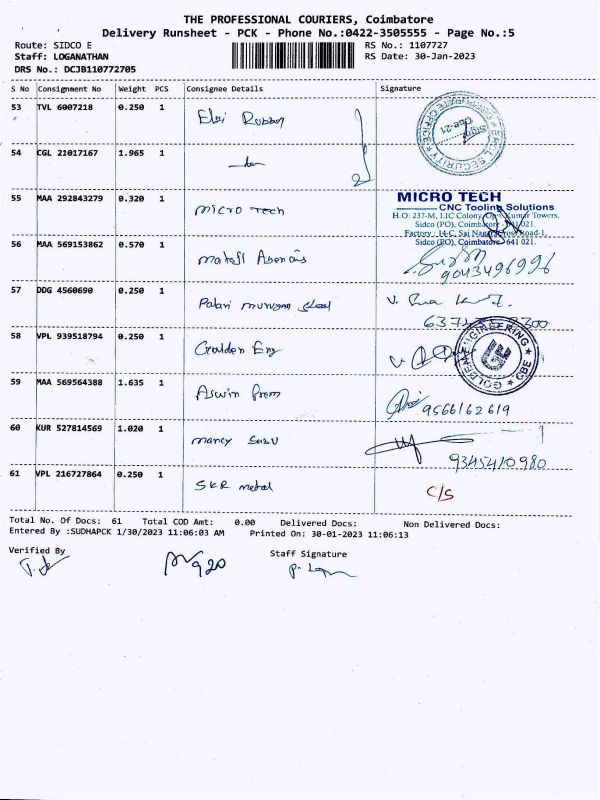 THE PROFESSIONAL COURIERS, Coimbatore
Delivery Runsheet - PCK - Phone No.:0422-3505555 - Page No.:5
Route: SIDCO E
RS No.: 1107727
Staff: LOGANATHAN
RS Date: 30-Jan-2023
DRS No.: DCJB110772705
S No Consignment No Weight PCS Consignee Details Signature
53 TVL 6007218 0.250 1 Elgi Rubber
54 CGL 21017167 1.965 1
55 MAA 292843279 0.320 1 Micro Tech
MICRO TECH
CNC Tooling Solutions
H.O: 237-M, LIC Colony, Kumar Towers,
Sidco (PO), Coimbatore 641 021.
Factory : 14-C, Sai Nagar, Cross Road-1,
Sidco (PO), Coimbatore 641 021.
56 MAA 569153862 0.570 1 9043496996
57 DDG 4560690 0.250 1 Palani murugan steel
58 VPL 939518794 0.250 1 Golden Eng
GOLDEN ENGINEERING ★ CBE ★
59 MAA 569564388 1.635 1 Aswin Prem 9566162619
60 KUR 527814569 1.020 1 mancy 9345410980
61 VPL 216727864 0.250 1 SKR metal C/S
Total No. Of Docs: 61 Total COD Amt: 0.00 Delivered Docs: Non Delivered Docs:
Entered By :SUDHAPCK 1/30/2023 11:06:03 AM Printed On: 30-01-2023 11:06:13
Verified By
Staff Signature